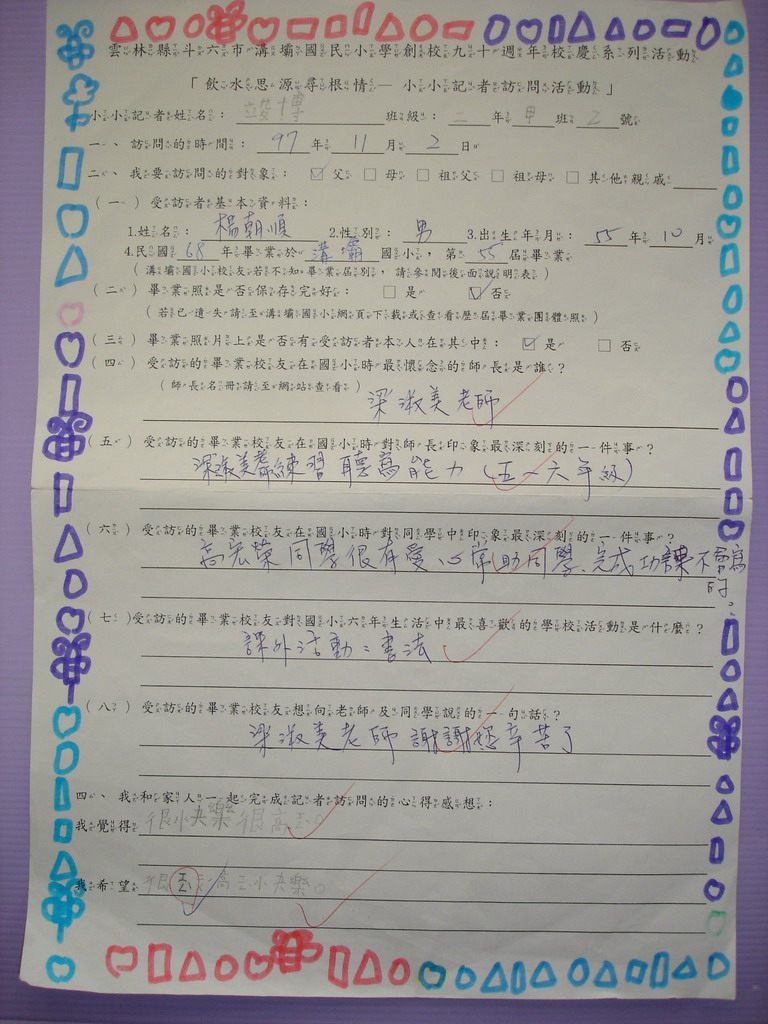 雲林縣斗六市溝壩國民小學創校九十週年校慶系列活動
「飲水思源尋根情—小小記者訪問活動」
小小記者姓名： 班級：二年甲班2號
一、訪問的時間：97年11月2日
二、我要訪問的對象：☑父□母□祖父□祖母□其他親戚
（一）受訪者基本資料：
1.姓名：楊朝順 2.性別：男 3.出生年月：55年10月
4.民國68年畢業於溝壩國小，第55屆畢業
（溝壩國小校友若不知畢業屆別，請參閱後面說明表）
（二）畢業照是否保存完好：□是☑否
（若已遺失請至溝壩國小網頁下載或查看歷屆畢業團體照）
（三）畢業照片上是否有受訪者本人在其中：☑是□否
（四）受訪的畢業校友在國小時最懷念的師長是誰？
（師長名冊請至網站查看）
梁淑美老師
（五）受訪的畢業校友在國小時對師長印象最深刻的一件事？
梁淑美 練習聽寫能力（五、六年級）
（六）受訪的畢業校友在國小時對同學中印象最深刻的一件事？
高宏榮同學很有愛心常助同學、完成功課不會寫
的。
（七）受訪的畢業校友對國小六年生活中最喜歡的學校活動是什麼？
課外活動：書法
（八）受訪的畢業校友想向老師及同學說的一句話？
梁淑美老師謝謝您辛苦了
四、我和家人一起完成記者訪問的心得感想：
我覺得很小快樂很高
我希望很 小快樂。